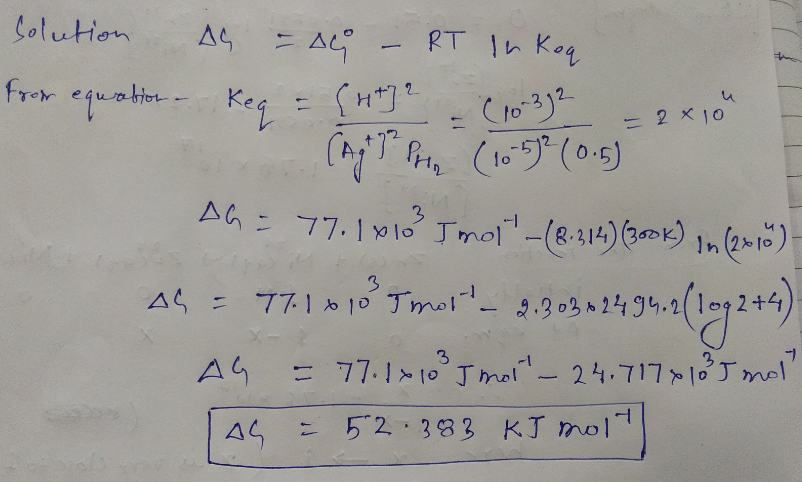 Solution ΔG = ΔG° - RT ln Keq
From equation - Keq = [H+]² / [Ag+]² P_H₂ = (10⁻³)² / (10⁻⁵)² (0.5) = 2 × 10⁴
ΔG = 77.1 × 10³ J mol⁻¹ - (8.314)(300K) ln (2×10⁴)
ΔG = 77.1 × 10³ J mol⁻¹ - 2.303 × 2494.2 (log 2+4)
ΔG = 77.1 × 10³ J mol⁻¹ - 24.717 × 10³ J mol⁻¹
ΔG = 52.383 KJ mol⁻¹